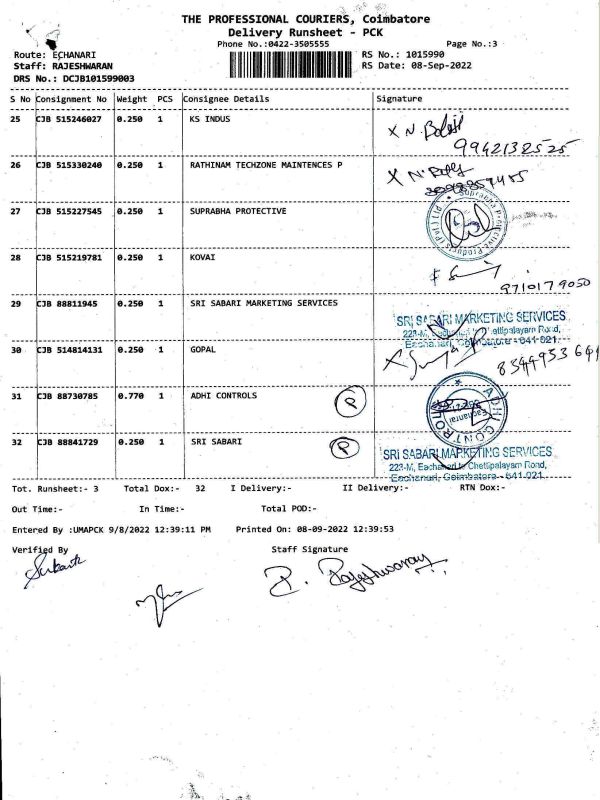 THE PROFESSIONAL COURIERS, Coimbatore
Delivery Runsheet - PCK
Phone No.:0422-3505555 Page No.:3
Route: ECHANARI RS No.: 1015990
Staff: RAJESHWARAN RS Date: 08-Sep-2022
DRS No.: DCJB101599003
S No Consignment No Weight PCS Consignee Details Signature
25 CJB 515246027 0.250 1 KS INDUS
9942132525
26 CJB 515330240 0.250 1 RATHINAM TECHZONE MAINTENCES P
27 CJB 515227545 0.250 1 SUPRABHA PROTECTIVE
Suprabha Protective Products (Pvt) Ltd
28 CJB 515219781 0.250 1 KOVAI
9710179050
29 CJB 88811945 0.250 1 SRI SABARI MARKETING SERVICES
SRI SABARI MARKETING SERVICES
Eachanari, Coimbatore - 641 021.
30 CJB 514814131 0.250 1 GOPAL
31 CJB 88730785 0.770 1 ADHI CONTROLS
P
ADHI CONTROLS
32 CJB 88841729 0.250 1 SRI SABARI
P
SRI SABARI MARKETING SERVICES
223-M, Eachanari to Chettipalayam Road,
Eachanari, Coimbatore - 641 021.
Tot. Runsheet:- 3 Total Dox:- 32 I Delivery:- II Delivery:- RTN Dox:-
Out Time:- In Time:- Total POD:-
Entered By :UMAPCK 9/8/2022 12:39:11 PM Printed On: 08-09-2022 12:39:53
Verified By Staff Signature
R. Rajeshwaran